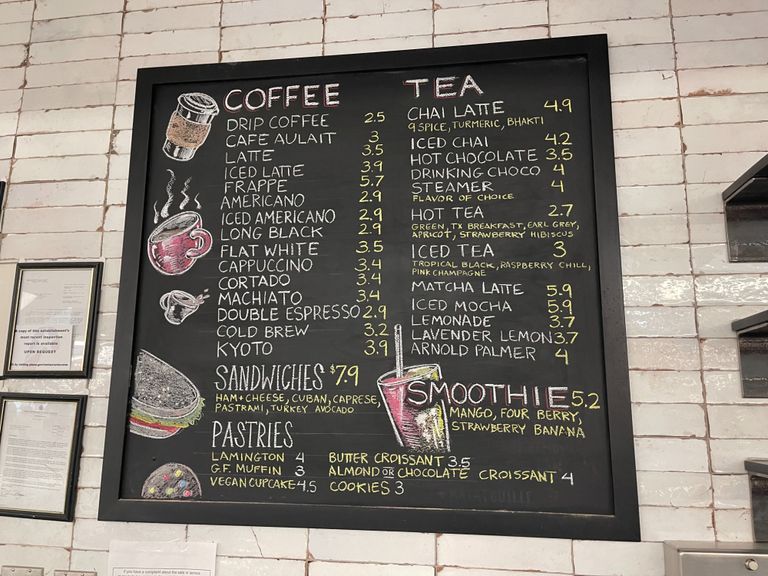 COFFEE
DRIP COFFEE 2.5
CAFE AULAIT 3
LATTE 3.5
ICED LATTE 3.9
FRAPPE 5.7
AMERICANO 2.9
ICED AMERICANO 2.9
LONG BLACK 2.9
FLAT WHITE 3.5
CAPPUCCINO 3.4
CORTADO 3.4
MACHIATO 3.4
DOUBLE ESPRESSO 2.9
COLD BREW 3.2
KYOTO 3.9
TEA
CHAI LATTE 4.9
9 SPICE, TURMERIC, BHAKTI
ICED CHAI 4.2
HOT CHOCOLATE 3.5
DRINKING CHOCO 4
STEAMER 4
FLAVOR OF CHOICE
HOT TEA 2.7
GREEN, TX BREAKFAST, EARL GREY,
APRICOT, STRAWBERRY HIBISCUS
ICED TEA 3
TROPICAL BLACK, RASPBERRY CHILL,
PINK CHAMPAGNE
MATCHA LATTE 5.9
ICED MOCHA 5.9
LEMONADE 3.7
LAVENDER LEMON 3.7
ARNOLD PALMER 4
SANDWICHES $7.9
HAM + CHEESE, CUBAN, CAPRESE,
PASTRAMI, TURKEY AVOCADO
SMOOTHIE 5.2
MANGO, FOUR BERRY,
STRAWBERRY BANANA
PASTRIES
LAMINGTON 4
G.F. MUFFIN 3
VEGAN CUPCAKE 4.5
BUTTER CROISSANT 3.5
ALMOND OR CHOCOLATE CROISSANT 4
COOKIES 3
A copy of this establishment's
most recent inspection
report is available
UPON REQUEST